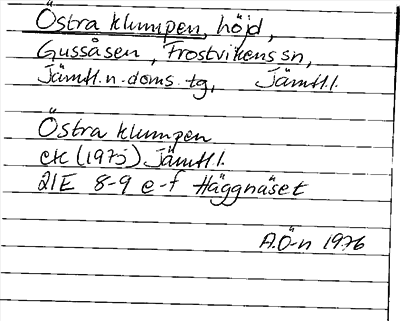 Östra klumpen, höjd,
Gussåsen, Frostvikens sn,
Jämtl. n. doms. tg, Jämtl. l.
Östra klumpen
ek (1975) Jämtl l.
21E 8-9 e-f Häggnäset
A.Ö-n 1976